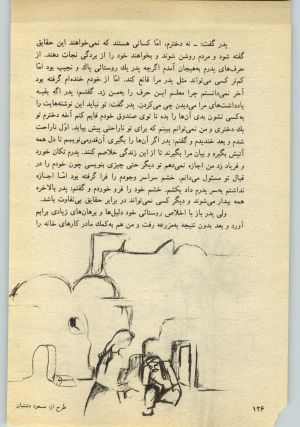 پدر گفت: ــ نه دخترم، امّا کسانی هستند که نمی‌خواهند این حقایق
گفته شود و مردم روشن شوند و بخواهند خود را از بردگی نجات دهند. از
حرف‌های پدرم به‌هیجان آمدم اگرچه پدر یك روستائی پاك و نجیب بود امّا
کم‌تر کسی می‌تواند مثل پدر مرا قانع کند. امّا از خودم خنده‌ام گرفته بود
آخر نمی‌دانستم چرا معلم این حرف را به‌من زد. گفتم: پدر اگه بقیه
یادداشت‌های مرا می‌دیدن چی می‌کردن. پدر گفت: تو نباید این نوشته‌هایت را
به‌کسی نشون بدی آن‌ها را بده تا توی صندوق خودم قایم کنم آخه دخترم تو
یك دختری و من نمی‌توانم ببینم که برای تو ناراحتی پیش بیاید. اوّل ناراحت
شدم و بعد خندیدم و گفتم: پدر اگر آن‌ها را بگیری آن‌قدر می‌نویسم تا دل همه
آتیش بگیره و بیان مرا بگیرند تا از این زندگی خلاصم کنند. پدرم نگاهی خودن
و فریاد زد من اجازه نمی‌دهم تو دیگر حتی چیزی بنویسی چون خودم را در
قبال تو مسئول می‌دانم. خشم سراسر وجودم را فرا گرفته بود امّا اجازه
نداشتم به‌سر پدرم داد بکشم. خشم خود را فرو خوردم و گفتم: پدر بالاخره
همه بیدار می‌شوند و دیگر کسی نمی‌تواند در برابر حقایق بی‌تفاوت باشد.
ولی پدر باز با اخلاص روستائی خود دلیل‌ها و برهان‌های زیادی برایم
آورد و بعد بدون نتیجه به‌مزرعه رفت و من هم به‌کمك مادر کارهای خانه را
طرح از: مسعود دشتبان
۱۲۶